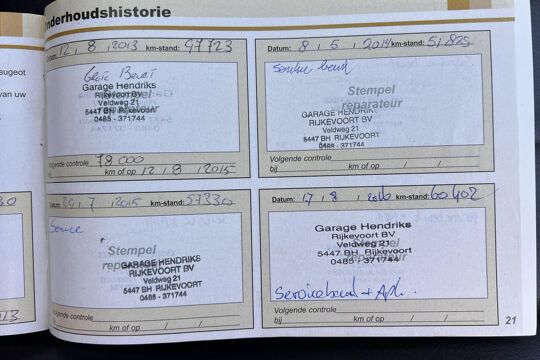 nderhoudshistorie
eugeot
van uw
Datum: 12 / 8 / 2013 km-stand: 47723
Garage Hendriks
Rijkevoort BV
Veldweg 21
5447 BH Rijkevoort
0485 - 371744
Stempel
reparateur
Volgende controle 78000
bij km of op 12 / 8 / 2015
Datum: 8 / 5 / 2014 km-stand: 51.825
Service beurt
Stempel
reparateur
GARAGE HENDRIKS
RIJKEVOORT BV
Veldweg 21
5447 BH RIJKEVOORT
0485 - 371744
Volgende controle
bij km of op / /
Datum: 29 / 7 / 2015 km-stand: 57330
Service
Stempel
reparateur
GARAGE HENDRIKS
RIJKEVOORT BV
Veldweg 21
5447 BH RIJKEVOORT
0485 - 371744
Volgende controle
bij km of op / /
Datum: 17 / 8 / 2016 km-stand: 60402
Garage Hendriks
Rijkevoort BV
Veldweg 21
5447 BH Rijkevoort
0485 - 371744
Stempel
reparateur
Servicebeurt + Apk.
Volgende controle
bij km of op / /
21